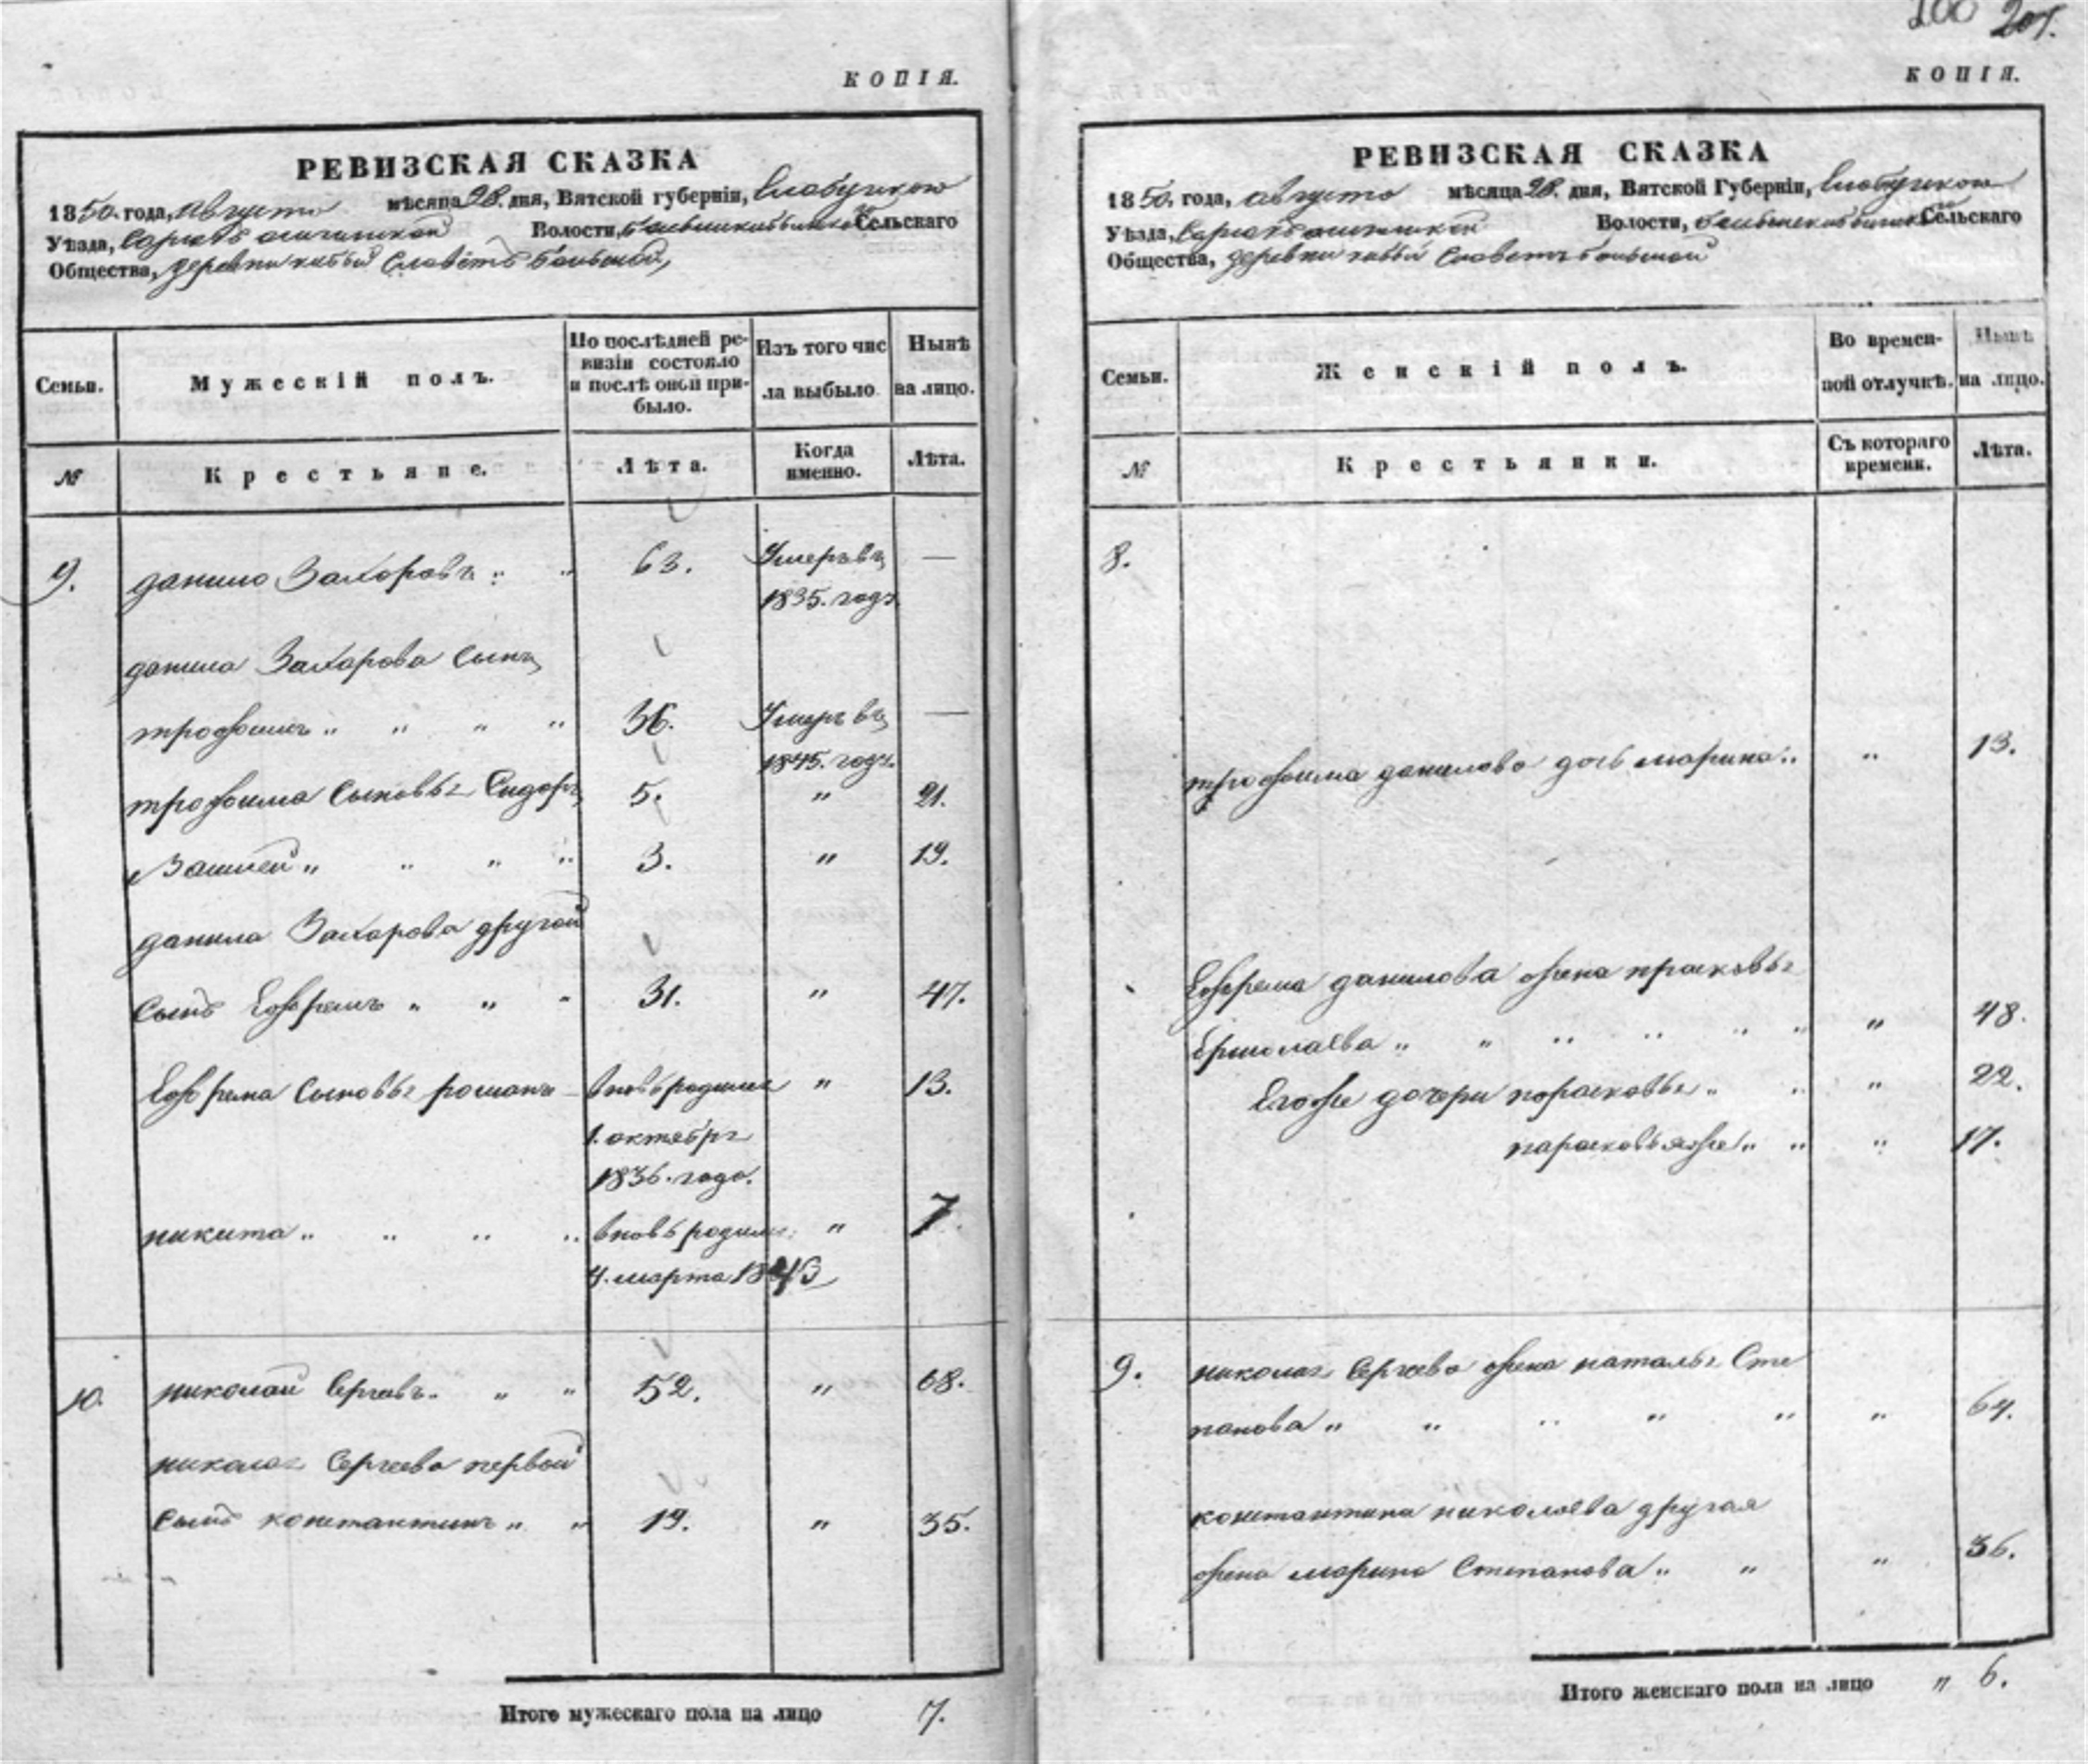 КОПІЯ.
РЕВИЗСКАЯ СКАЗКА
1850. года, августа мѣсяца 28. дня, Вятской губерніи, Елабужскаго
Уѣзда, Волости, Сельскаго
Общества, деревни
Семьи. Мужескій полъ. По послѣдней ревизіи состояло и послѣ оной прибыло. Изъ того числа выбыло. Нынѣ на лицо.
№ Крестьяне. Лѣта. Когда именно. Лѣта.
9. данило Захаровъ „ „ 63. Умеръ въ —
1835. годъ
данила Захарова сынъ
трофимъ „ „ „ „ 36. Умеръ въ —
1845. годъ.
трофима сыновья Сидоръ 5. „ 21.
„ „ „ „ 3. „ 19.
данила Захарова другой
сынъ Ефремъ „ „ „ 31. „ 47.
Ефрема сыновья романъ вновь родился „ 13.
1. октября
1836. года.
никита „ „ „ „ вновь родился „ 7.
4. марта 1843
10. николай Сергѣевъ. „ „ 52. „ 68.
николая Сергеева первой
сынъ константинъ „ „ 19. „ 35.
Итого мужескаго пола на лицо 7.
200 201.
КОПІЯ.
РЕВИЗСКАЯ СКАЗКА
1850. года, августа мѣсяца 28. дня, Вятской Губерніи, Елабужскаго
Уѣзда, Волости, Сельскаго
Общества, деревни
Семьи. Женскій полъ. Во временной отлучкѣ. Нынѣ на лицо.
№ Крестьянки. Съ котораго времени. Лѣта.
8.
трофима данилова дочь марина „ „ 13.
Ефрема данилова жена прасковья
Ермолаева „ „ „ „ „ „ „ 48.
Егоже дочери порасковья „ „ „ 22.
парасковьяже „ „ „ 17.
9. николая Сергеева жена наталья Сте
панова „ „ „ „ „ „ 64.
константина николаева другая
жена марина Степанова „ „ „ 36.
Итого женскаго пола на лицо „ 6.